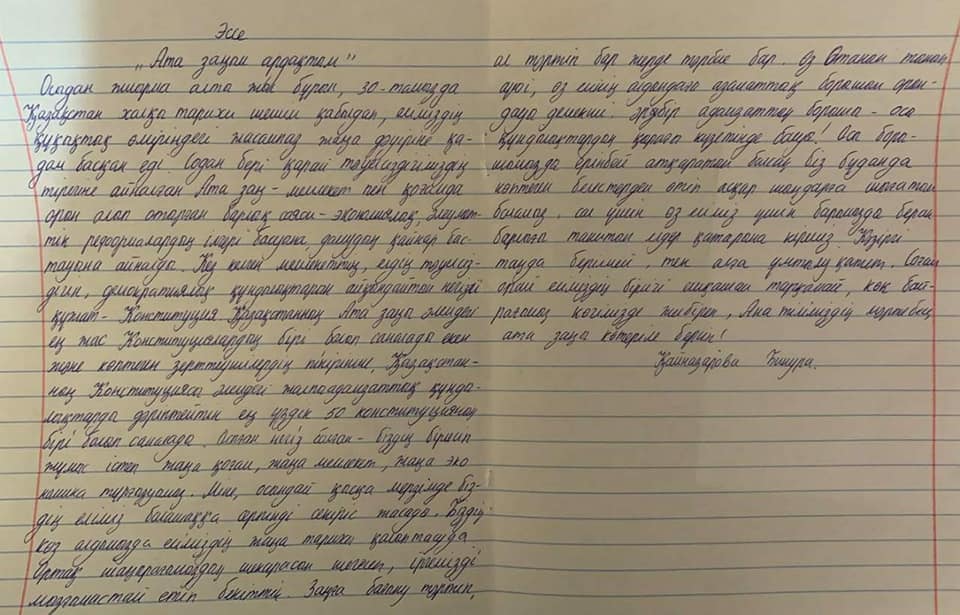 Эссе
„Ата заңын ардақтап"
Осыдан жиырма алты жыл бұрын, 30-тамызда
Қазақстан халқы тарихи шешім қабылдап, еліміздің
құқықтық өміріндегі жасампаз жаңа дәуіріне қа-
дам басқан еді. Содан бері қарай тәуелсіздігіміздің
тірегіне айналған Ата заң - мемлекет пен қоғамда
орын алып отырған барлық саяси-экономиялық, әлеумет-
тік реформалардың ілгері басуына, дамудың қайнар бас-
тауына айналды. Кез келген мемлекеттің, елдің тәуелсіз-
дігін, демократиялық құндылықтарын айқындайтын негізгі
құжат- Конституция Қазақстанның Ата заңы әлемдегі
ең жас Конституциялардың бірі болып саналады екен
және көптеген зерттеушілердің пікірінше, Қазақстан-
ның Конституциясы әлемдегі жалпыадамзаттық құнды-
лықтарды дәріптейтін ең үздік 50 конституцияның
бірі болып саналады. Оған негіз болған- біздің бірлесіп
жұмыс істеп жаңа қоғам, жаңа мемлекет, жаңа эко
номика тұрғызуымыз. Міне, осындай қысқа мерзімде біз-
дің еліміз болашаққа серпінді секіріс жасады. Біздің
көз алдымызда еліміздің жаңа тарихы қалыптасуда
Ортақ шаңырағымыздың шекарасын шегелеп, іргемізді
мызғымастай етіп бекіттік. Заңға бағыну тәртіп,
ал тәртіп бар жерде тәрбие бар. Өз Отанын танып
сүю, өз елінің алдындағы азаматтық борышын орын-
дауы дегеніміз. Әрбір адамзаттың борышы - осы
құндылықтардың қорғап күзетінде болу! Осы боры-
шымызды ерінбей атқаратын болсақ біз бұданда
көптеген белестерден өтіп асқар шыңдарға шығатын
боламыз. сол үшін өз еліміз үшін барымызды берсек
барлығы танитын елдер қатарына кіреміз. Қазіргі
таңда берілмей, тек алға ұмтылу қажет. Соған
орай еліміздің бірлігі ешқашан тарқамай, көк бай-
рағымыз көгімізде желбіреп, Ана тіліміздің мәртебесі,
ата заңы көтеріле берсін!
Қайназарова Бинура.